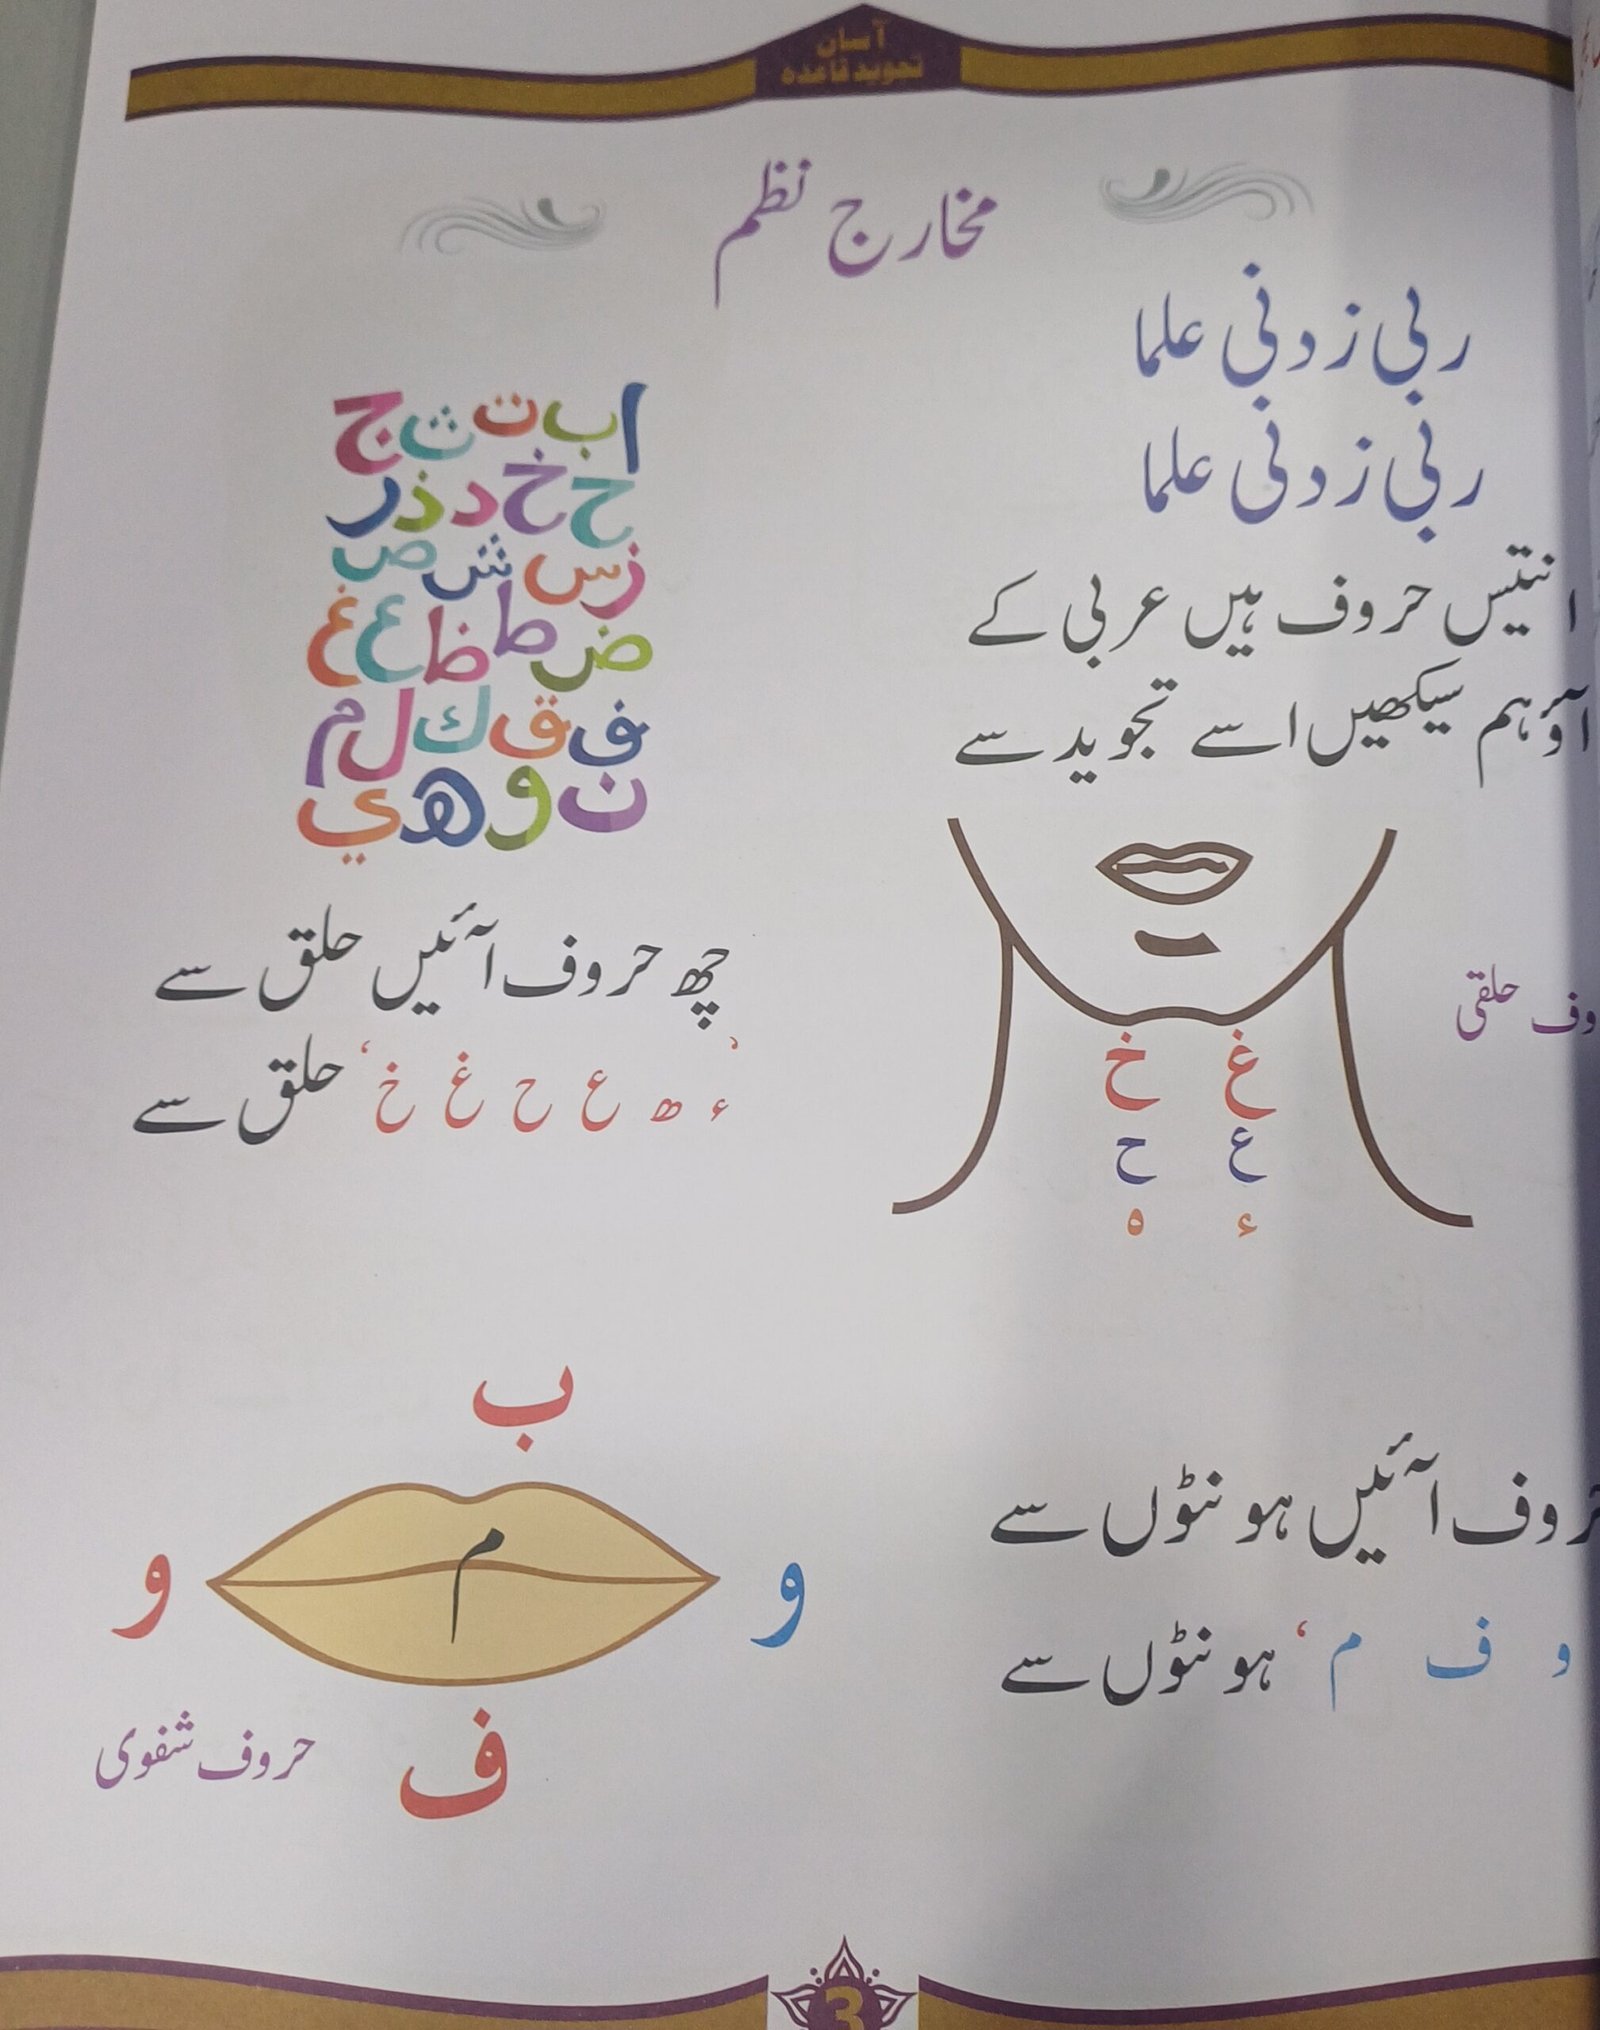 آسان
تجوید قاعدہ
مخارج نظم
ربی زدنی علما
ربی زدنی علما
انتیس حروف ہیں عربی کے
آؤ ہم سیکھیں اسے تجوید سے
ا ب ت ث ج
ح خ د ذ ر
ز س ش ص
ض ط ظ ع غ
ف ق ك ل م
ن و ه ي
حلقی
غ خ
ع ح
ء ہ
چھ حروف آئیں حلق سے
‘ء ھ ع ح غ خ‘ حلق سے
حروف آئیں ہونٹوں سے
و ف م‘ ہونٹوں سے
ب
و م و
ف
حروف شفوی
3